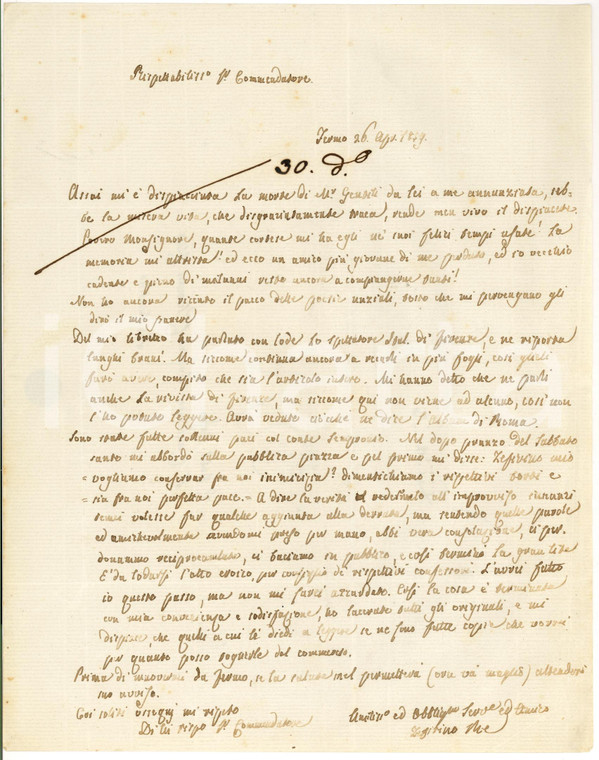 Rispettabiliss.o Sr. Commendatore
Fermo 26. Apr. 1859.
30. d.o
Assai mi è dispiaciuta la morte di Mr. Gentili da lei a me annunziata, seb-
be la misera vita, che disgraziatamente traea, rende men vivo il dispiacere.
Povero Monsignore, quante cortesie mi ha egli ne' suoi felici tempi usate! La
memoria mi attrista! ed ecco un amico più giovane di me perduto, ed io vecchio
cadente e pieno di malanni resto ancora a compiangerne tanti!
Non ho ancora ricevuto il pacco delle poesie nuziali, tosto che mi pervengano gli
dirò il mio parere
Del mio libretto ha parlato con lode lo spettatore Ital. di Firenze, e ne riporta
lunghi brani. Ma siccome continua ancora a
farò avere, compito che sia l'articolo intero. Mi hanno detto che ne parli
anche la rivista di Firenze, ma siccome qui non viene ad alcuno, così non
l'ho potuto leggere. Avrà veduto ciocché ne dice l'Album di Roma.
Sono state fatte solenni paci col conte Sempronio. Nel dopo pranzo del Sabbato
santo mi abbordò sulla pubblica piazza e pel primo mi disse: Zefirino mio
= vogliamo conservar fra noi inimicizia? dimentichiamo i rispettivi torti e
= sia fra noi perfetta pace. = A dire la verità vedermelo all'improvviso innanzi
temei volesse far qualche aggiunta alla derrata, ma sentendo quelle parole
ed amichevolmente avendomi preso per mano, ebbi vera consolazione, ci per-
donammo reciprocamente, ci baciamo in pubblico, e così terminò la gran lite
E' da lodarsi l'atto eroico, per consiglio de' rispettivi confessori. L'avrei fatto
io questo passo, ma non mi sarei azzardato. Così la cosa è terminata
con mia convenienza e sodisfazione, ho lacerato tutti gli originali, e mi
dispiace, che quelli a cui li diedi a leggere se ne sono fatte copie che vorrei
per quanto posso togliere dal commercio.
Prima di muovermi da Fermo, se la salute mel permetterà (ora va meglio) attenderò
suo avviso.
Coi soliti ossequi mi ripeto
Di lei rispo Sr. Commendatore
ed Obbligmo Serve ed Amico